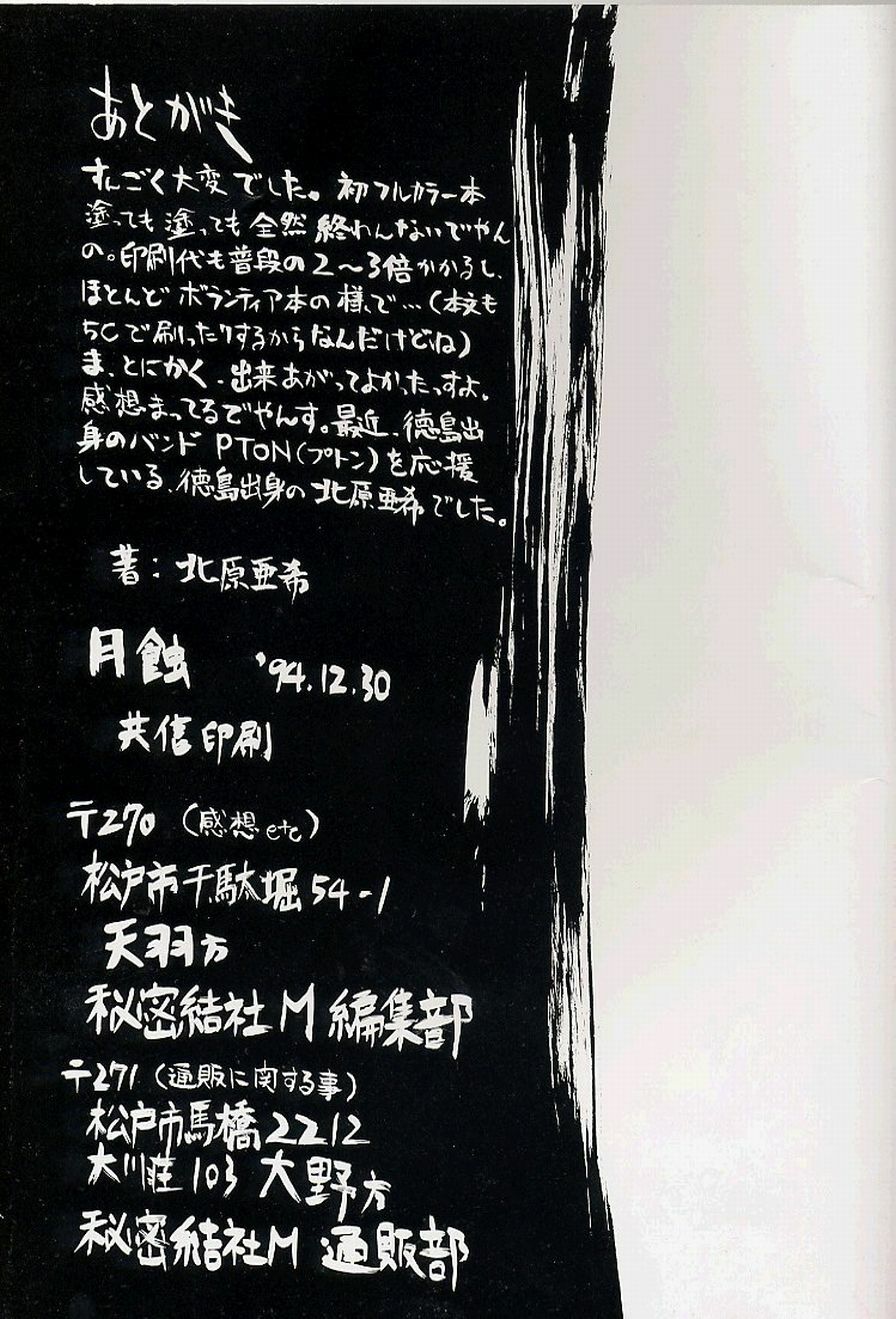 あとがき
すんごく大変でした。初フルカラー本
塗っても塗っても全然終わんないでやん
の。印刷代も普段の2〜3倍かかるし、
ほとんどボランティア本の様で…(本文も
5Cで刷ったりするからなんだけどね)
ま、とにかく、出来あがってよかったっすよ。
感想まってるでやんす。最近、徳島出
身のバンド PTON(プトン)を応援
している、徳島出身の北原亜希でした。
著:北原亜希
月蝕 '94.12.30
共信印刷
〒270 (感想etc)
松戸市千駄堀54-1
天羽方
秘密結社M編集部
〒271 (通販に関する事)
松戸市馬橋2212
大川荘103 大野方
秘密結社M 通販部